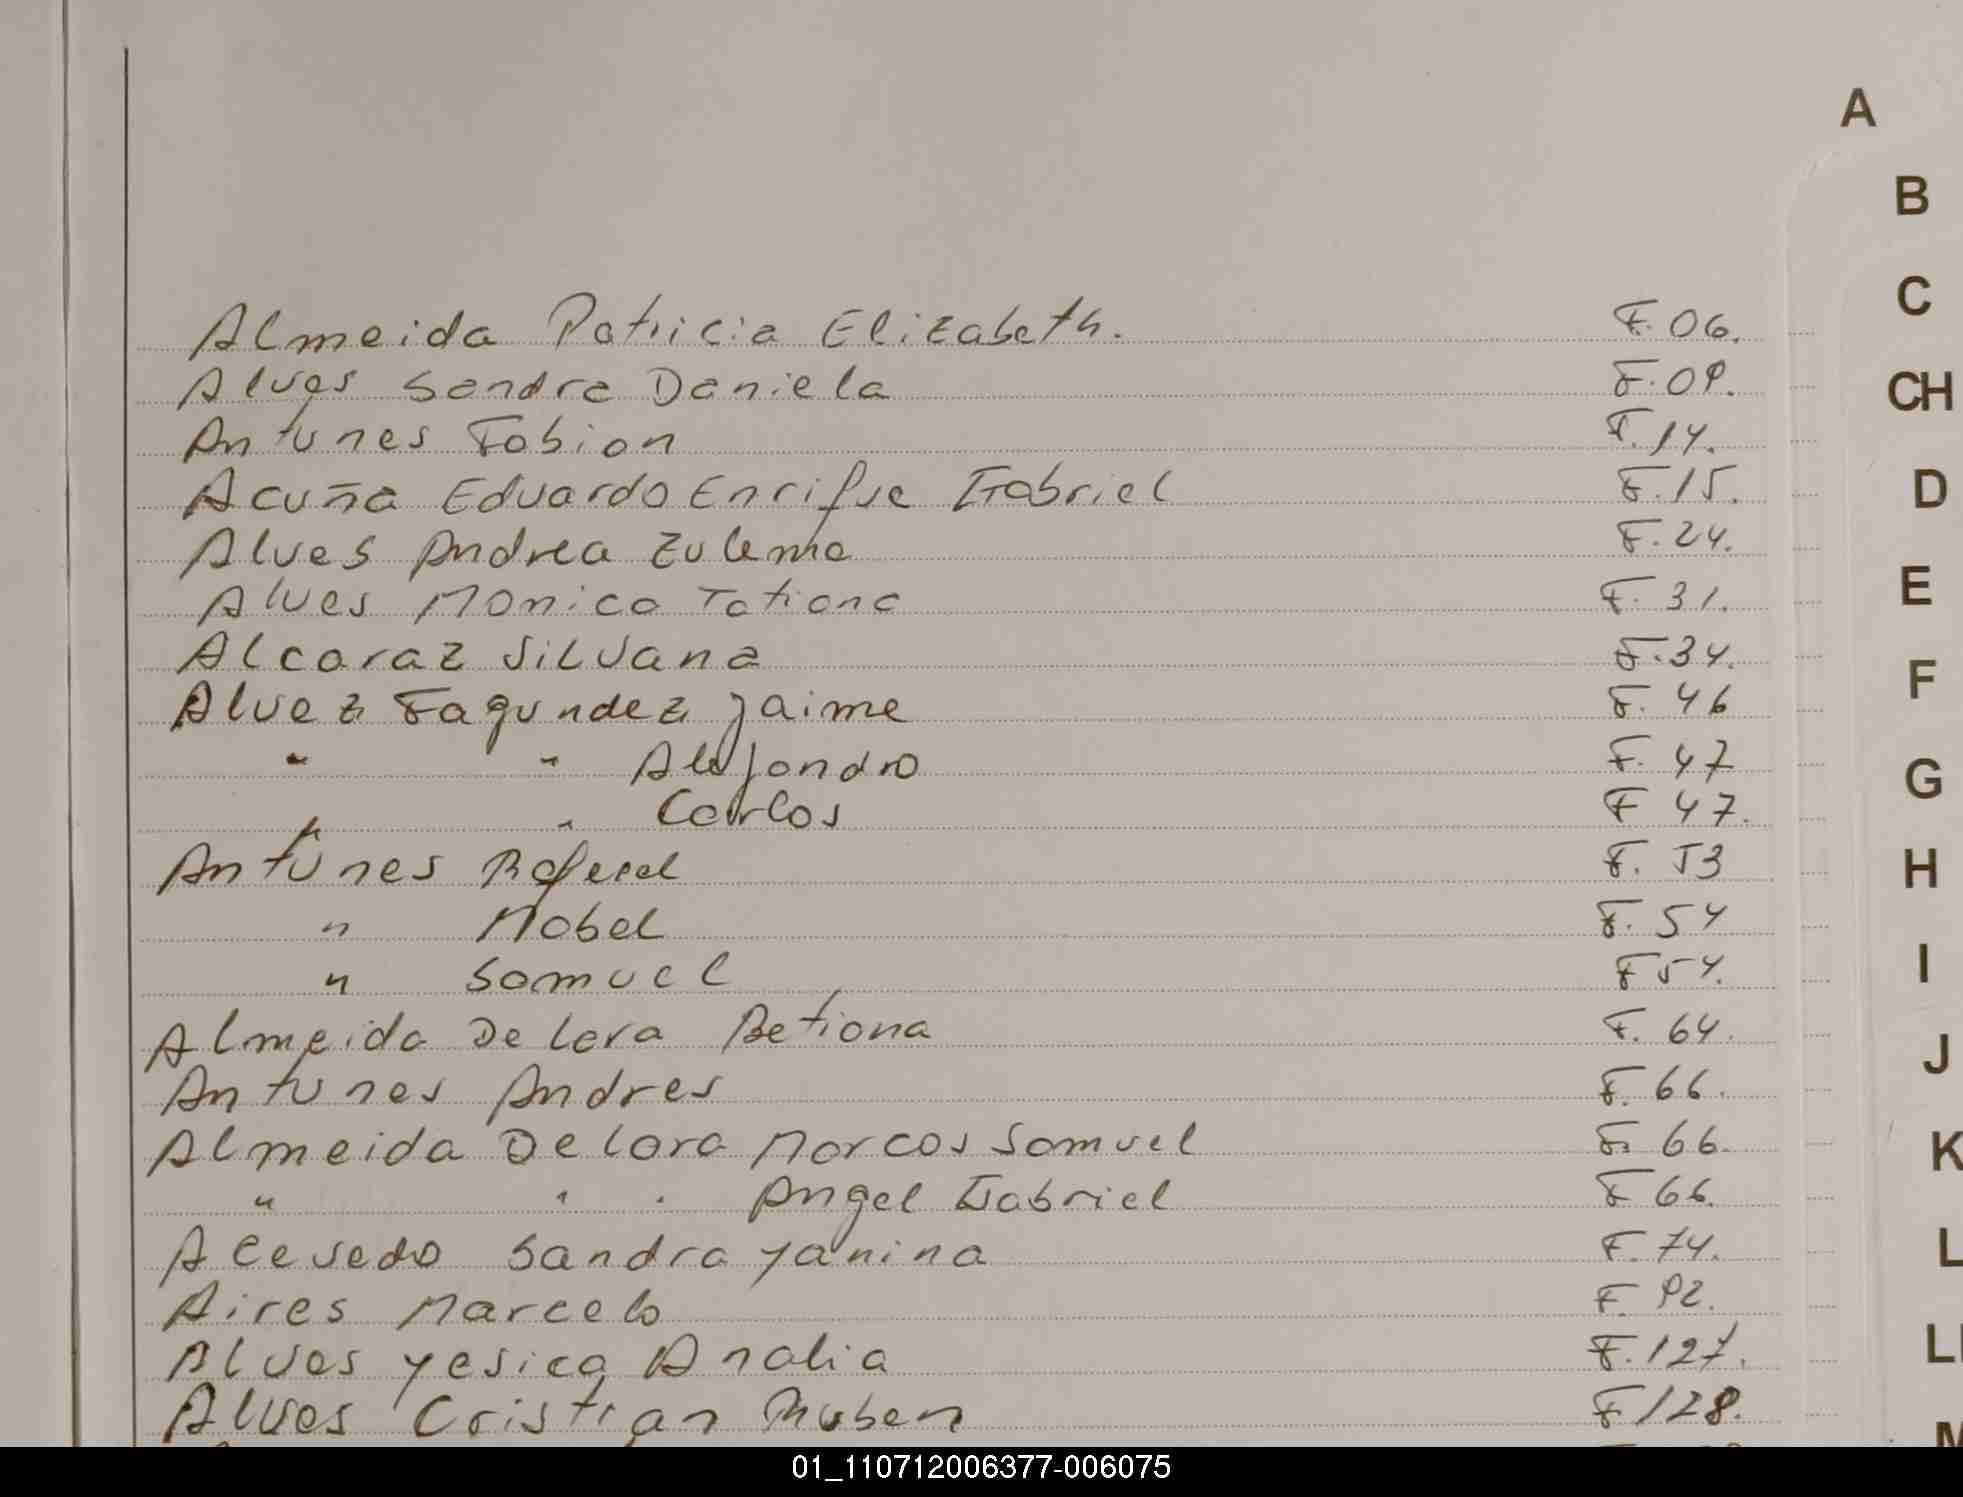 A
B
C
CH
D
E
F
G
H
I
J
K
L
Almeida Patricia Elizabeth. F. 06.
Alves Sandra Daniela F. 09.
Antunes Fabian F. 14.
Acuña Eduardo Enrique Gabriel F. 15.
Alves Andrea Zulema F. 24.
Alves Monica Tatiana F. 31.
Alcaraz Silvana F. 34.
Alvez Fagundez Jaime F. 46
" " Alejandro F. 47
" " Carlos F 47.
Antunes Rafael F. 53
" Mabel F. 54
" Samuel F 54.
Almeida De Lara Betiana F. 64.
Antunes Andres F. 66.
Almeida De Lara Marcos Samuel F. 66.
" " " Angel Gabriel F 66.
Acevedo Sandra Yanina F. 74.
Aires Marcelo F. 92.
Alves Yesica Analia F. 127.
Alves Cristian Ruben F 128.
01_110712006377-006075